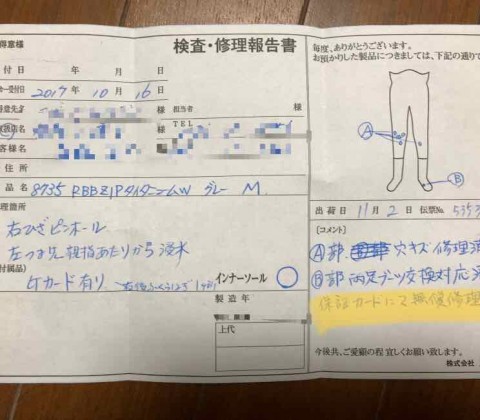 得意様
検査・修理報告書
付日 年 月 日
カー受付日 2017 年 10 月 16 日
得意先名 様 担当者 様
取扱店名 様 TEL
客様名 様
住所
品名 8735 RBBZIPタイタニュームW グレー M
修理箇所
右ひざピンホール
左つま先親指あたりから浸水
付属品)
ケカード有り
インナーソール ○
製造年
上代
毎度、ありがとうございます。
お預かりした製品につきましては、下記の通りで
A
B
出荷日 11月2日 伝票No. 5353
(コメント)
A部、穴キズ修理済
B部 両足ブーツ交換対応済
保証カードにて無償修理
今後共、ご愛顧の程宜しくお願い致します。
株式会社